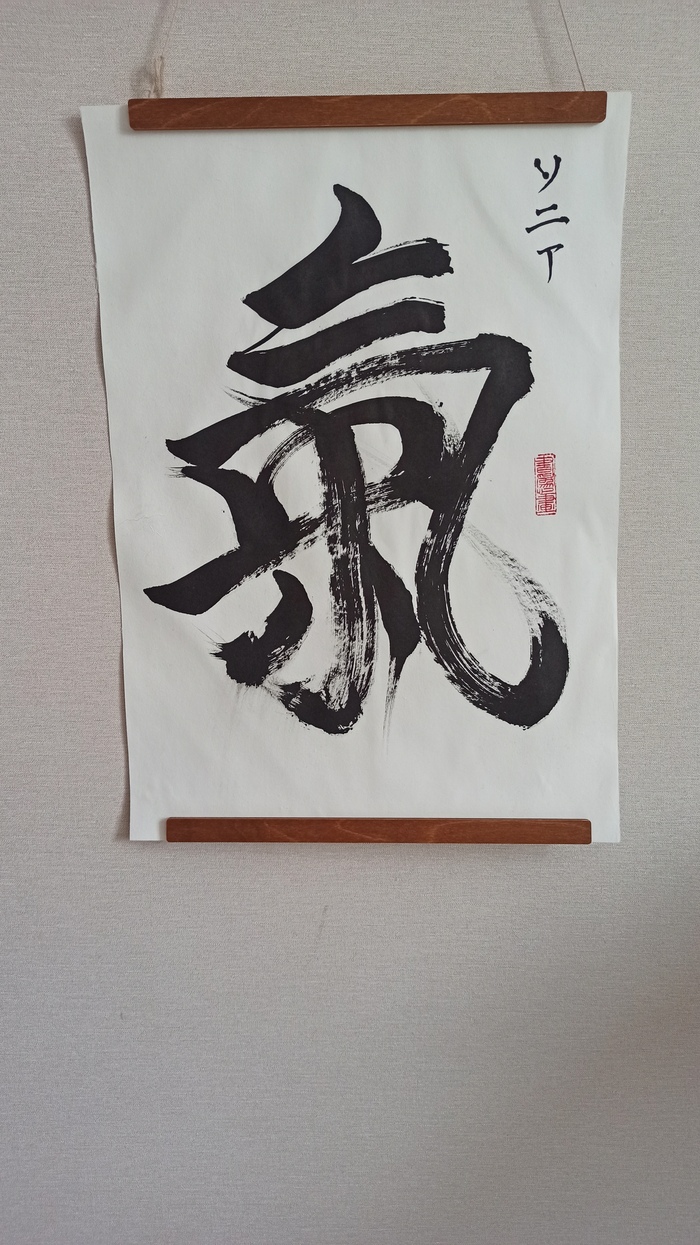 ソニア
氣